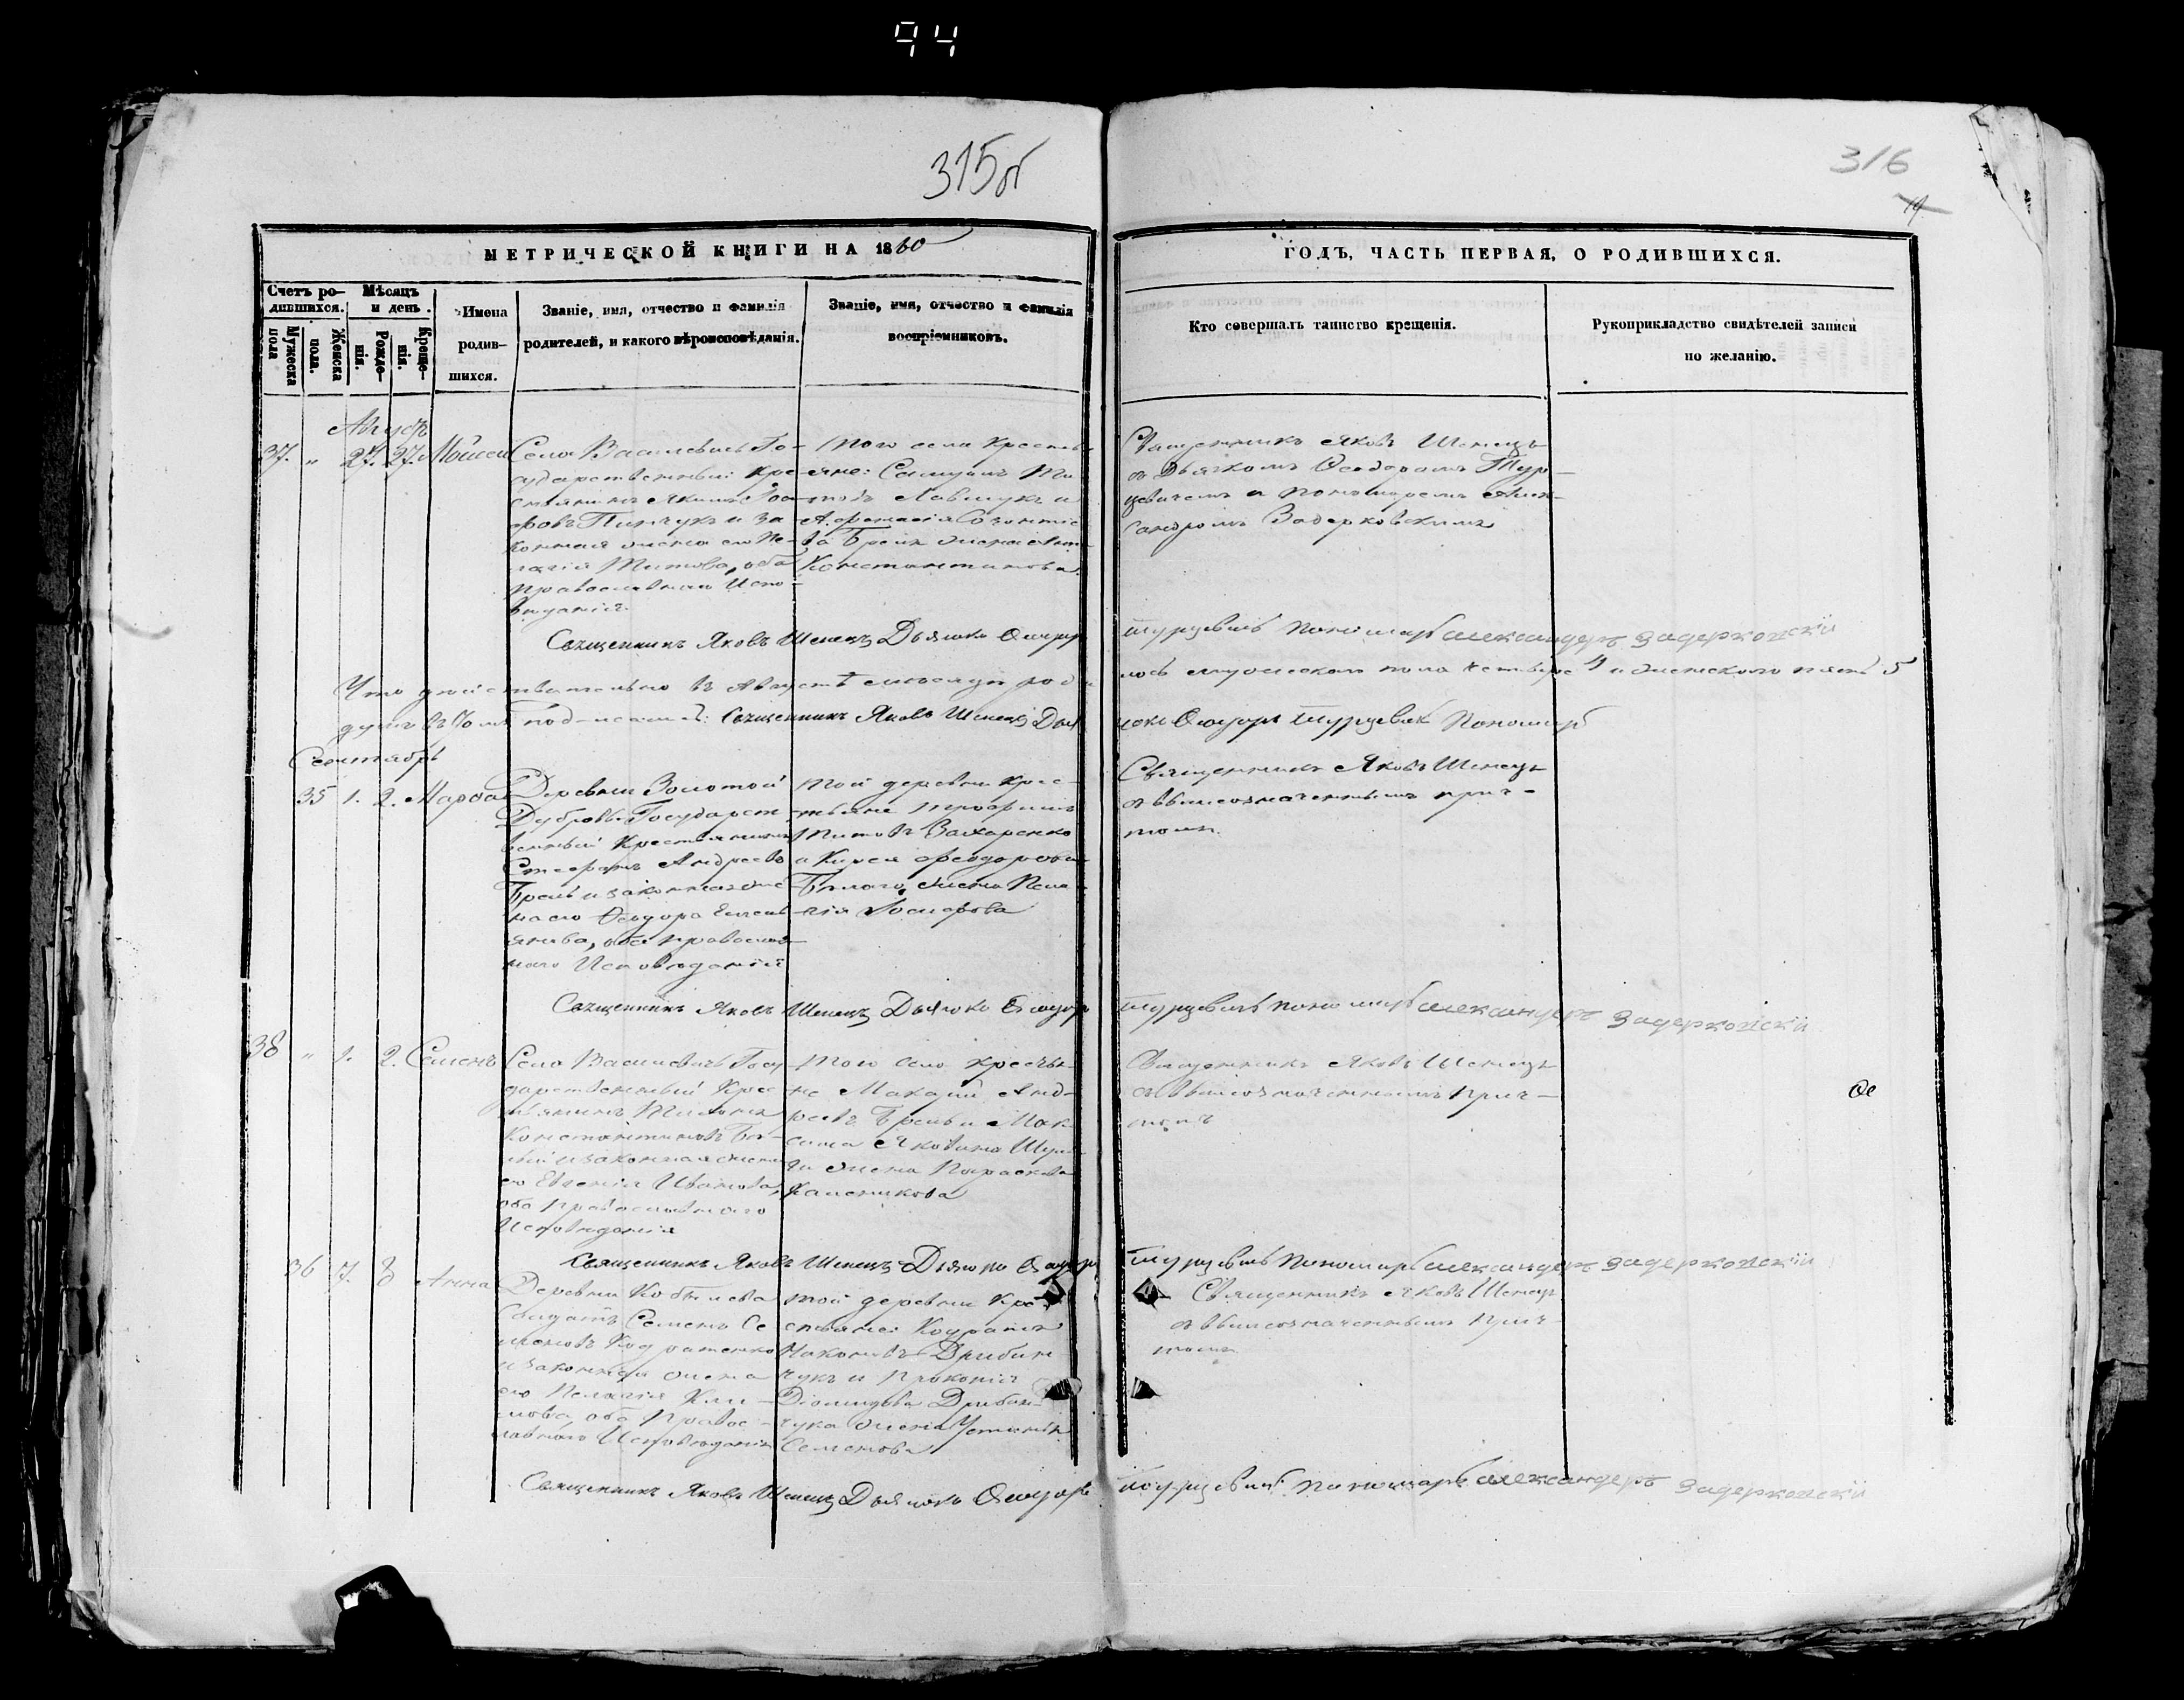 94
315об
316
19
МЕТРИЧЕСКОЙ КНИГИ НА 1860
ГОДЪ, ЧАСТЬ ПЕРВАЯ, О РОДИВШИХСЯ.
Счетъ ро-
дившихся.
Мужеска
пола
Женска
пола.
Мѣсяцъ
и день.
Рожде-
нія.
Креще-
нія.
Имена
родив-
шихся.
Званіе, имя, отчество и фамилія
родителей, и какого вѣроисповѣданія.
Званіе, имя, отчество и фамилія
воспріемниковъ.
Кто совершалъ таинство крещенія.
Рукоприкладство свидѣтелей записи
по желанію.
Августъ
37. " 27. 27. Моисей
Села Василевичъ Го-
сударственный Кре-
стьянинъ Якимъ
Пинчукъ и за-
конная жена его Пе-
лагія Титова, оба
православнаго Испо-
веданія
Того села Кресть
яне: Самуилъ Ти
товъ Левчукъ и
Константинова
Священникъ Яковъ Шенецъ
съ Дьячкомъ Феодоромъ Тур-
цевичемъ и Пономаремъ Алек-
сандромъ Задерковскимъ
Священникъ Яковъ Шенецъ Дьячокъ Феодоръ Турцевичъ Пономарь Александеръ Задерковскій
Что действительно въ Августѣ месяцѣ роди
лось мужескаго пола четверо 4 и женскаго пять 5
душъ въ томъ подписались: Священникъ Яковъ Шенецъ Дья
чокъ Феодоръ Турцевичъ Пономарь
Сентябрь
35 1. 2. Марфа
Деревни Золотой
Дубровы Государст-
венный Крестьянинъ
Стефанъ Андреевъ
Брель и законная же-
на его Феодора Емель
янова, оба православ-
наго Исповеданія
Той деревни Крес-
тьяне Трофимъ
Титовъ Захаренко
и Кирея Феодорова
Белаго жена Пела
гія Іосифова
Священникъ Яковъ Шенецъ
съ вышеозначеннымъ прич-
томъ.
Священникъ Яковъ Шенецъ Дьячокъ Феодоръ Турцевичъ Пономарь Александеръ Задерковскій
38 " 1. 2. Семенъ
Села Василевичъ Госу
дарственный Крес
тьянинъ
Константиновъ Бе-
лый и законная жена
его Евгенія Иванова,
оба Православнаго
Исповеданія
Того села Крестья
не Макарій Анд-
реевъ Брель и Мак
сима Яковина
жена Параскева
Священникъ Яковъ Шенецъ
съ вышеозначеннымъ Прич-
томъ
Священникъ Яковъ Шенецъ Дьячокъ Феодоръ Турцевичъ Пономарь Александеръ Задерковскій
36 7. 8 Анна
Деревни
Солдатъ Семенъ Се
меновъ Кодратенко
и законная жена
его Пелагія Кли-
мова, оба Правос-
лавнаго Исповеданія
Той деревни Кре
стьяне: Кодратъ
Дрибин
чукъ и Прокопія
Діомидова Дрибин
чука жена Устинья
Семенова
Священникъ Яковъ Шенецъ
съ вышеозначеннымъ Прич-
томъ
Священникъ Яковъ Шенецъ Дьячокъ Феодоръ Турцевичъ Пономарь Александеръ Задерковскій